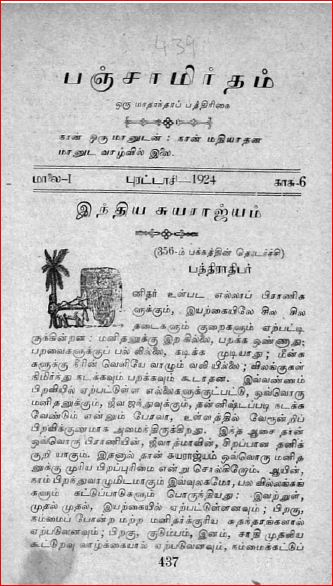 439
பஞ்சாமிர்தம்
ஒரு மாதாந்தரப் பத்திரிகை
கான ஒரு மானுடன் : கான் மதியாதன
மானுட வாழ்வில் இலை.
மாலை—I புரட்டாசி—1924 காசு-6
இந்திய சுயராஜ்யம்
(356-ம் பக்கத்தின் தொடர்ச்சி)
பத்திராதிபர்
னிதர் உள்பட எல்லாப் பிராணிக
ளுக்கும், இயற்கையிலே சில சில
தடைகளும் குறைகளும் ஏற்பட்டி
ருக்கின்றன : மனிதனுக்கு இறகில்லை, பறக்க ஒண்ணாது;
பறவைகளுக்குப் பல் வில்லை, கடிக்க முடியாது; மீன்க
ளுக்கு நீரின் வெளியே வாழும் வலி யில்லை; விலங்குகள்
நிமிர்ந்து நடக்கவும் பறக்கவும் கூடாதன. இவ்வண்ணம்
பிறவியில் ஏற்பட்டுள்ள எல்லைகளுக்குட்பட்டு, ஒவ்வொரு
மனிதனுக்கும், ஜீவ ஜந்துவுக்கும், தன்னிஷ்டப்படி நடக்க
வேண்டும் என்னும் பேரவா, உள்ளத்தில் வேரூன்றிப்
பிறவிக்குணமாக அமைந்திருக்கிறது. இந்த ஆசை தான்
ஒவ்வொரு பிராணியின், ஜீவாத்மாவின், சிறப்பான தனிக்
குறி யாகும். இதனால் தான் சுயராஜ்யம் ஒவ்வொரு மனித
னுக்கு முரிய பிறப்புரிமை என்று சொல்கிறோம். ஆயின்,
நாம் பிறந்துவாழுமிடமாகும் இவ்வுலகமோ, பல வில்லங்கங்
களும் கட்டுப்பாடுகளும் பொருந்தியது: இவற்றுள்,
முதல் முதல், இயற்கையில் ஏற்பட்டுள்ளனவும் ; பிறகு,
நம்மைப் போன்ற மற்ற மனிதர்க்குரிய சுதந்தரங்களால்
ஏற்படுவனவும் ; பிறகு, குடும்பம், இனம், சாதி முதலிய
கூட்டுறவு வாழ்க்கையால் ஏற்படுவனவும், நம்மைக்கட்டுப்
437